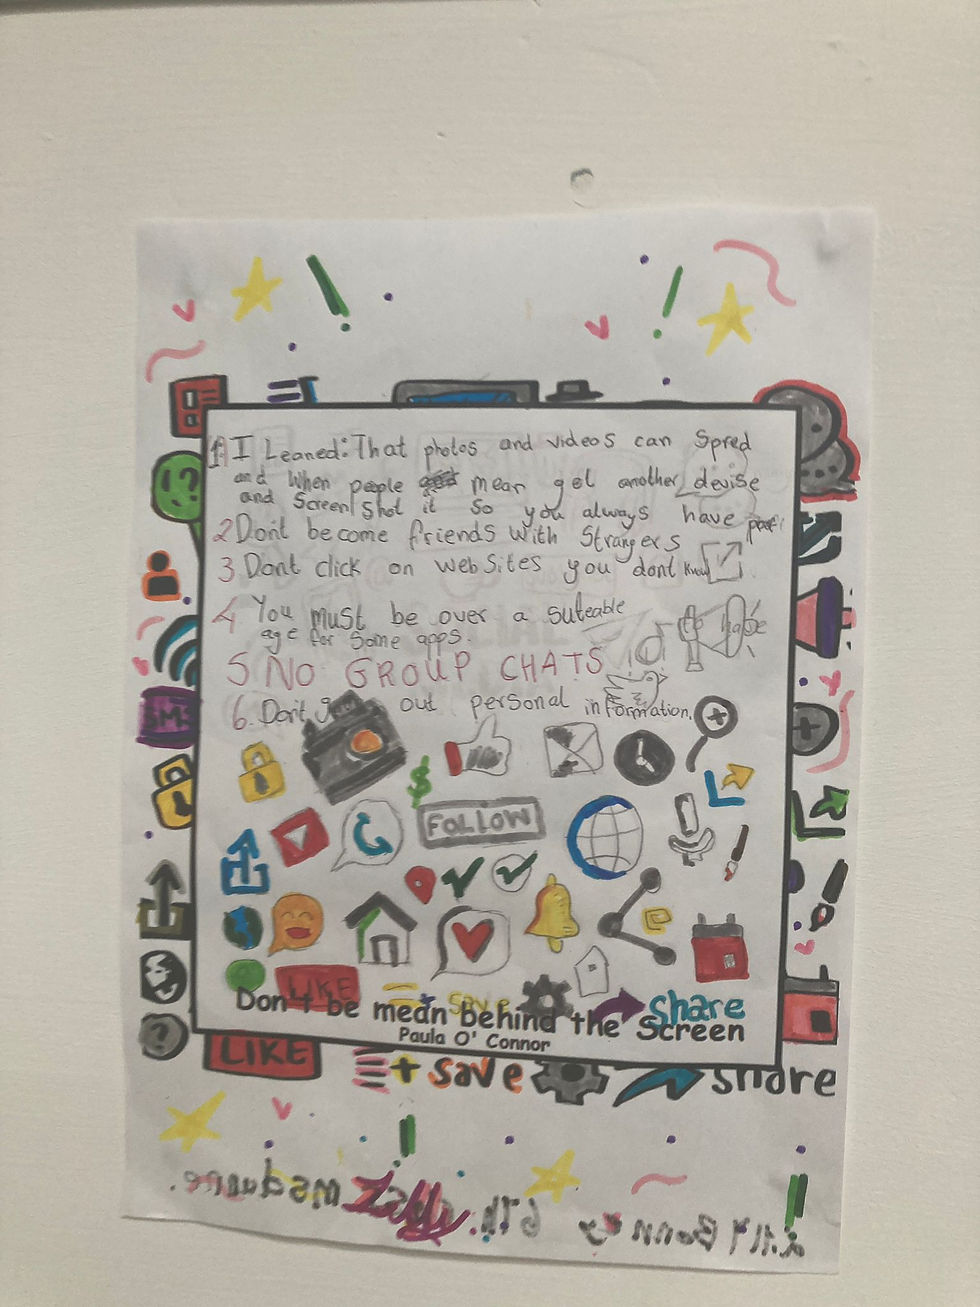 1 I Leaned: That photos and videos can Spred
and when people mean get another devise
and Screen Shot it so you always have
2 Don't become friends with Strangers
3. Dont click on web Sites you dont know
4 You must be over a suteable
age for some apps.
5 NO GROUP CHATS
6. Don't out personal information.
FOLLOW
LIKE
save
share
Don't be mean behind the Screen
Paula O' Connor
SMS
LIKE
+ save
share
6Th.